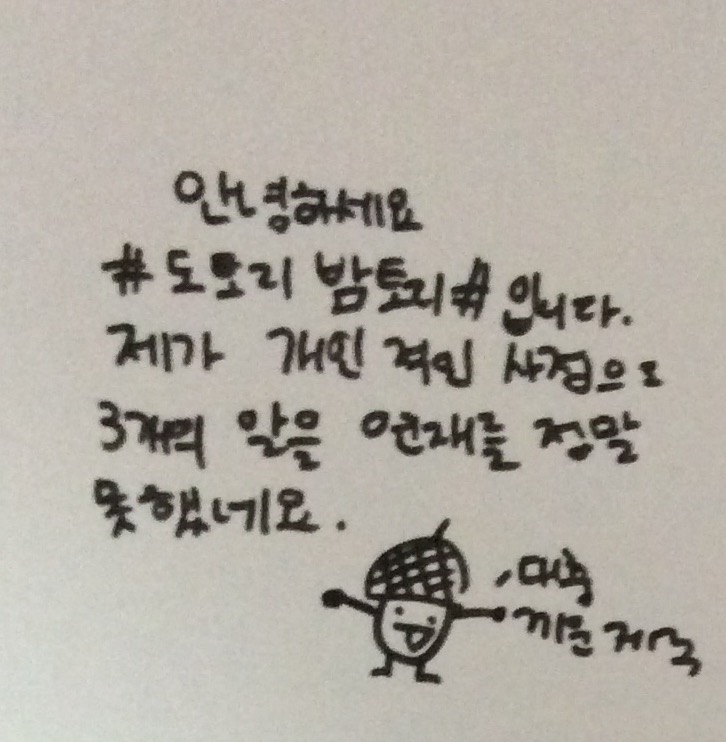 안녕하세요
#도토리 밤토리# 입니다.
제가 개인 적인 사정으로
3개의 알을 연재를 정말
못했네요.